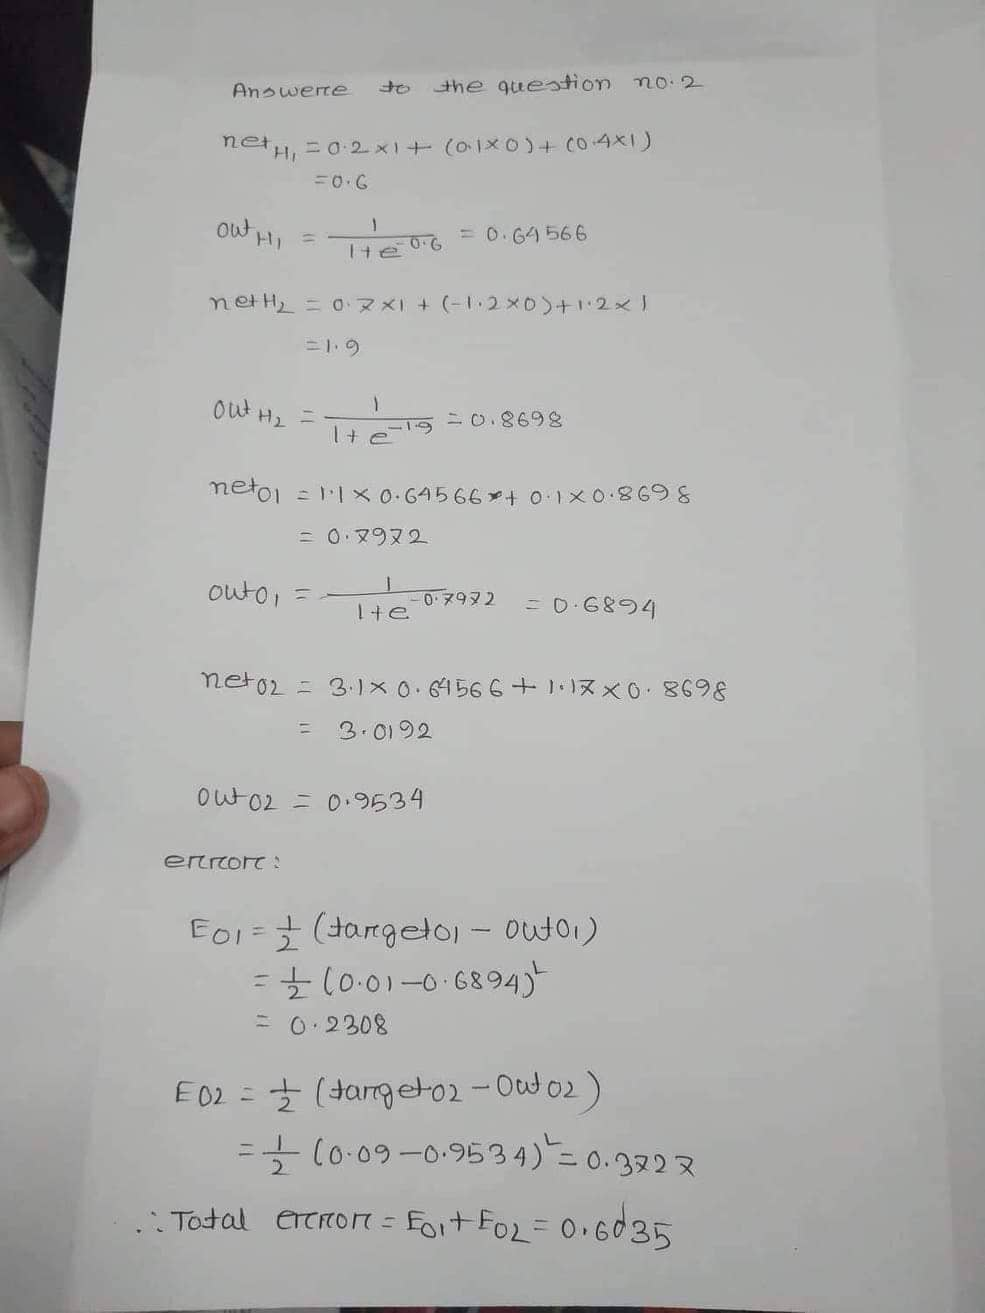 Answere to the question no. 2
net H1 = 0.2 × 1 + (0.1 × 0) + (0.4 × 1)
= 0.6
out H1 = 1 / (1 + e^-0.6) = 0.64566
net H2 = 0.7 × 1 + (-1.2 × 0) + 1.2 × 1
= 1.9
out H2 = 1 / (1 + e^-1.9) = 0.8698
net O1 = 1.1 × 0.64566 + 0.1 × 0.8698
= 0.7972
out O1 = 1 / (1 + e^-0.7972) = 0.6894
net O2 = 3.1 × 0.64566 + 1.17 × 0.8698
= 3.0192
out O2 = 0.9534
error:
E O1 = 1/2 (target O1 - out O1)
= 1/2 (0.01 - 0.6894)²
= 0.2308
E O2 = 1/2 (target O2 - Out O2)
= 1/2 (0.09 - 0.9534)² = 0.3727
∴ Total error = E O1 + E O2 = 0.6035